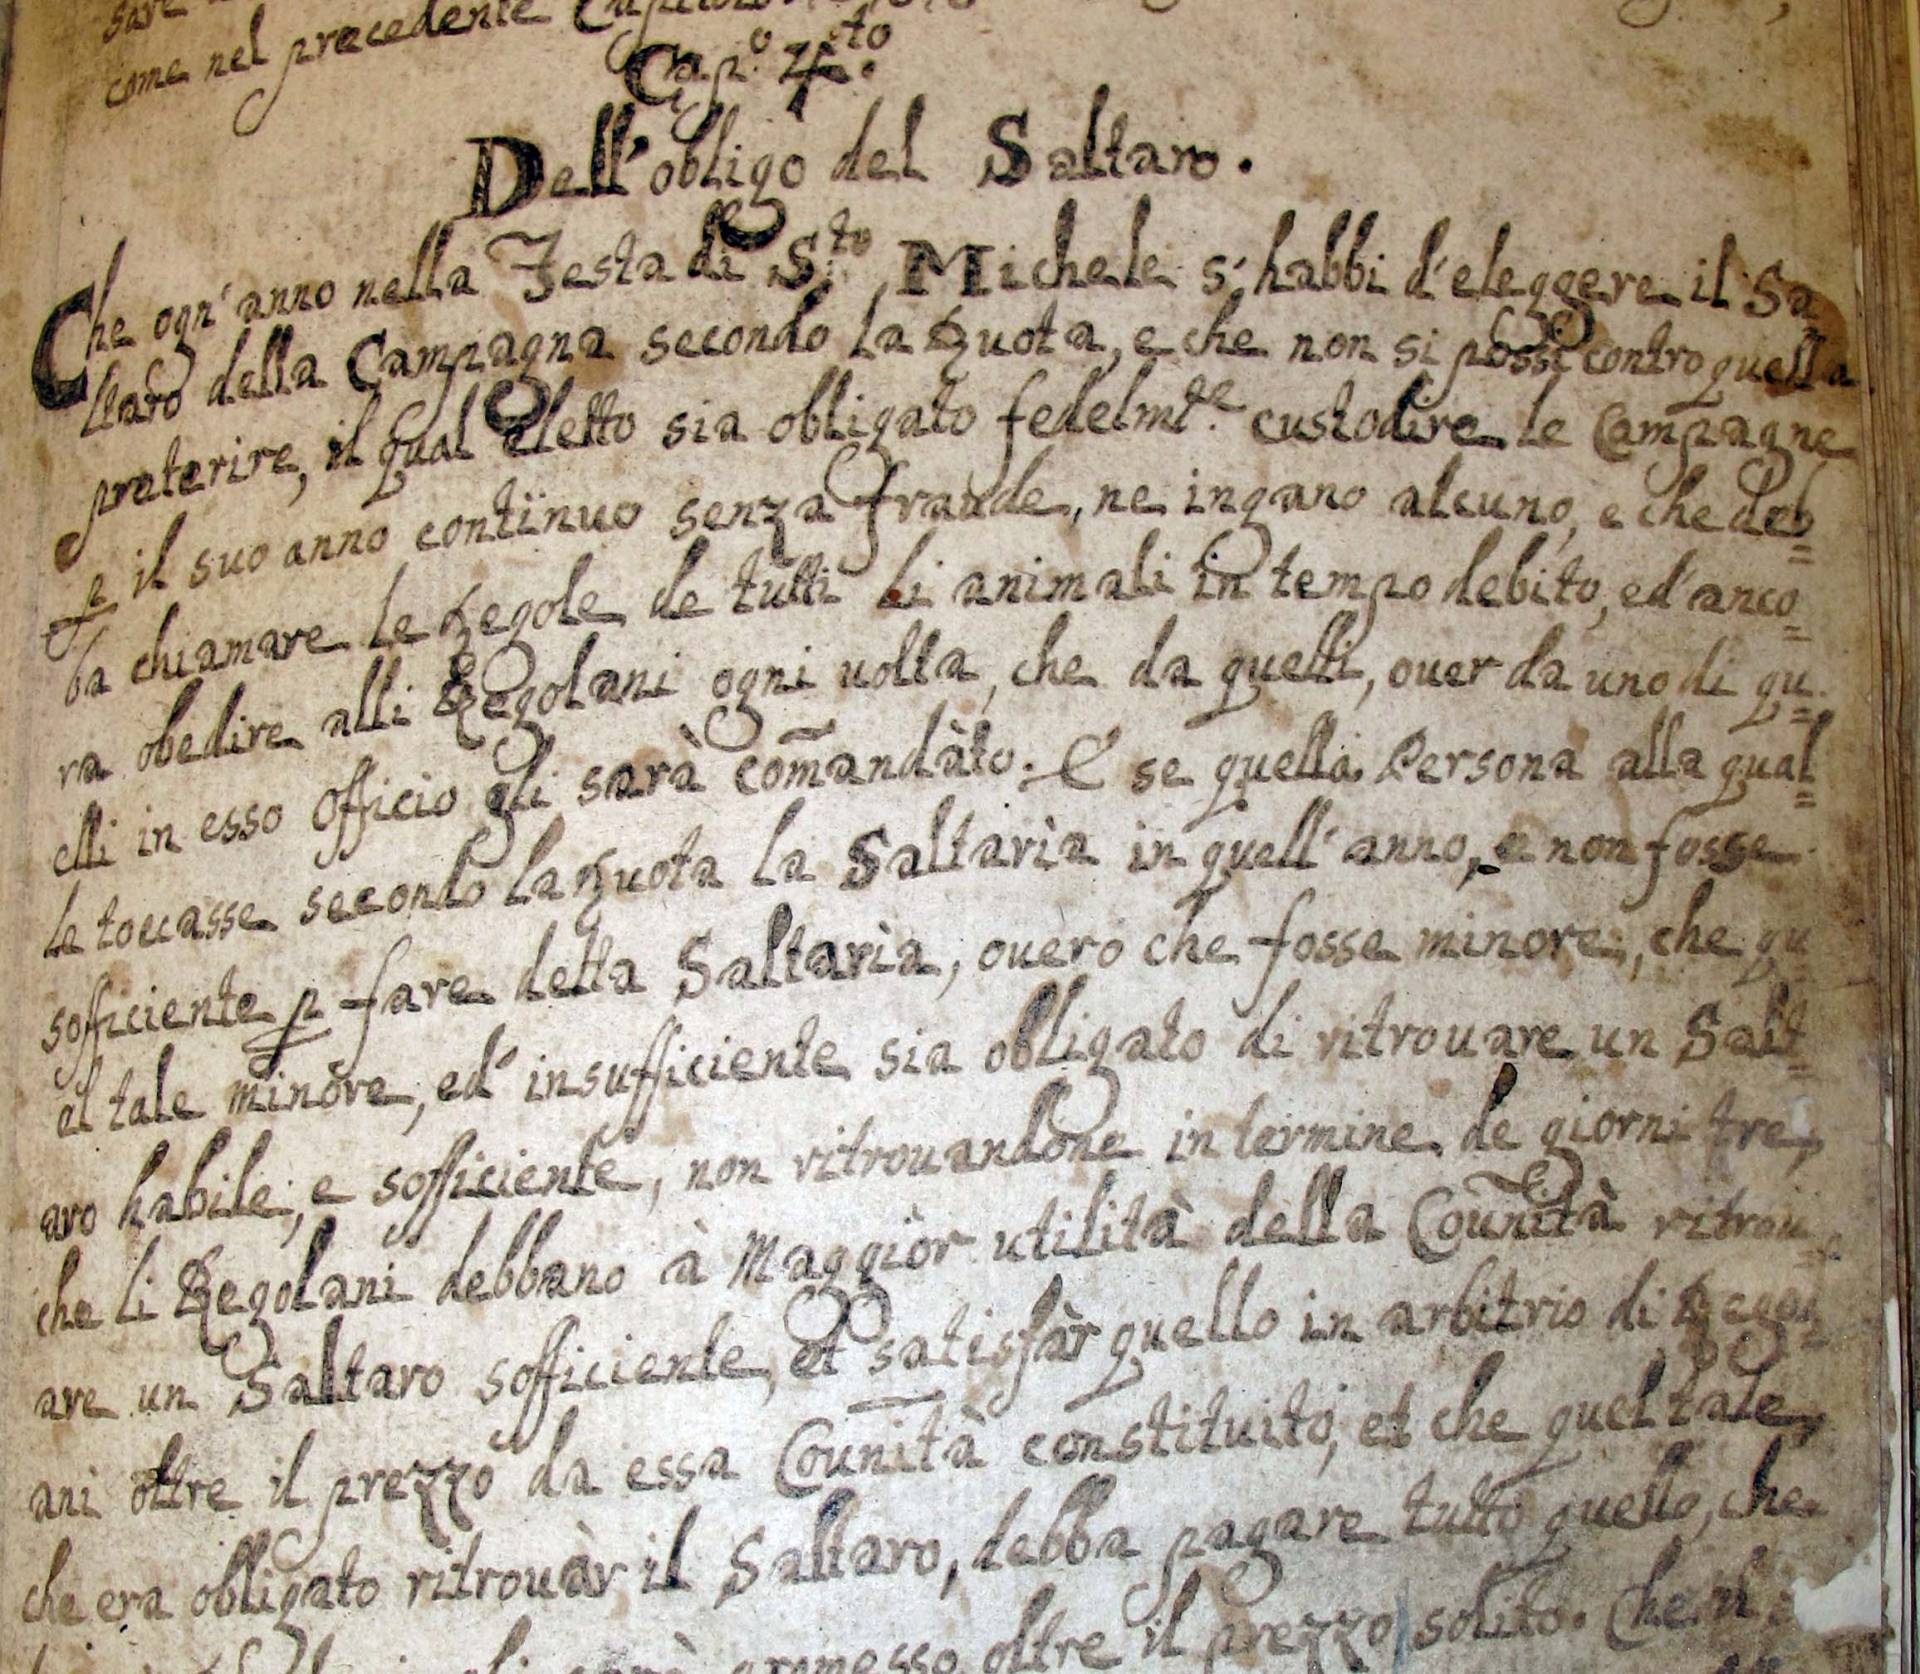 come nel precedente
Cap.º 4.to
Dell'obligo del Saltaro.
Che ogn'anno nella Festa di S.to Michele s'habbi d'eleggere il Sa=
ltaro della Campagna secondo la Ruota, e che non si possi contro quella
preterire, il qual eletto sia obligato fedelmte. custodire le Campagne
p il suo anno continuo senza fraude, ne ingano alcuno, e che deb=
ba chiamare le Regole de tutti li animali in tempo debito, ed'anco=
ra obedire alli Regolani ogni uolta, che da quelli, ouer da uno di qu=
elli in esso officio gli sarà com̃andàto. E se quella Persona alla qual=
le toccasse secondo la Ruota la Saltarìa in quell'anno, e non fosse
sofficiente p fare detta Saltarìa, ouero che fosse minore, che qu
el tale minòre, ed' insufficiente sia obligato di ritrouare un Salt=
aro habile, e sofficiente, non ritrouandone in termine de giorni tre,
che li Regolani debbano à Maggiòr utilità della Coũnità ritrou=
are un Saltaro sofficiente, et satisfàr quello in arbitrio di Regol=
ani oltre il prezzo da essa Coũnità constituito, et che quel tale,
che era obligato ritrouàr il Saltaro, debba pagare tutto quello, che
promesso oltre il prezzo solito. Che il